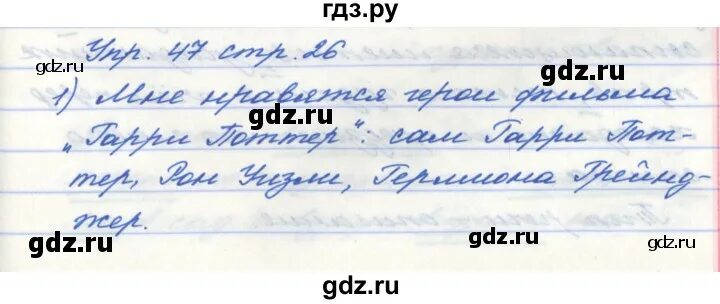 гдз.ру
Упр. 47 стр. 26
1) Мне нравятся герои фильма
gdz.ru
gdz.ru
„Гарри Поттер“: сам Гарри Пот-
тер, Рон Уизли, Гермиона Грейнд-
жер.
gdz.ru
gdz.ru
gdz.ru